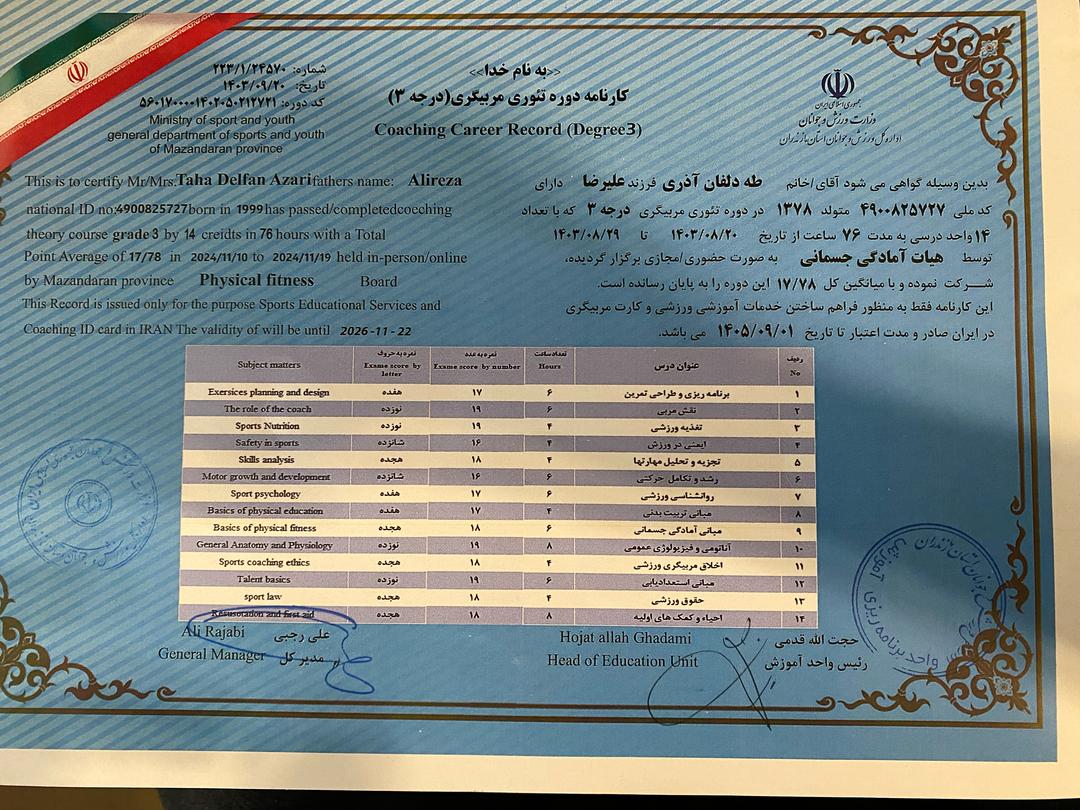 <<به نام خدا>>
کارنامه دوره تئوری مربیگری(درجه ۳)
Coaching Career Record (Degree3)
شماره: ۲۲۳/۱/۲۴۵۷۰
تاریخ: ۱۴۰۳/۰۹/۲۰
کد دوره: ۵۶۰۱۷۰۰۰۰۱۴۰۲۰۵۰۲۱۲۷۲۱
Ministry of sport and youth
general department of sports and youth
of Mazandaran province
جمهوری اسلامی ایران
وزارت ورزش و جوانان
اداره کل ورزش و جوانان استان مازندران
This is to certify Mr/Mrs.Taha Delfan Azarifathers name: Alireza
national ID no:4900825727born in 1999has passed/completedcoeching
theory course grade3 by 14 creidts in 76 hours with a Total
Point Average of 17/78 in 2024/11/10 to 2024/11/19 held in-person/online
by Mazandaran province Physical fitness Board
This Record is issued only for the purpose Sports Educational Services and
Coaching ID card in IRAN The validity of will be until 2026-11-22
بدین وسیله گواهی می شود آقای/خانم طه دلفان آذری فرزند علیرضا دارای
کد ملی ۴۹۰۰۸۲۵۷۲۷ متولد ۱۳۷۸ در دوره تئوری مربیگری درجه ۳ که با تعداد
۱۴واحد درسی به مدت ۷۶ ساعت از تاریخ ۱۴۰۳/۰۸/۲۰ تا ۱۴۰۳/۰۸/۲۹
توسط هیات آمادگی جسمانی به صورت حضوری/مجازی برگزار گردیده،
شرکت نموده و با میانگین کل ۱۷/۷۸ این دوره را به پایان رسانده است.
این کارنامه فقط به منظور فراهم ساختن خدمات آموزشی ورزشی و کارت مربیگری
در ایران صادر و مدت اعتبار تا تاریخ ۱۴۰۵/۰۹/۰۱ می باشد.
Subject matters نمره به حروف Exame score by letter نمره به عدد Exame score by number تعداد ساعت Hours عنوان درس ردیف No
Exersices planning and design هفده ۱۷ ۶ برنامه ریزی و طراحی تمرین ۱
The role of the coach نوزده ۱۹ ۶ نقش مربی ۲
Sports Nutrition نوزده ۱۹ ۴ تغذیه ورزشی ۳
Safety in sports شانزده ۱۶ ۴ ایمنی در ورزش ۴
Skills analysis هجده ۱۸ ۴ تجزیه و تحلیل مهارتها ۵
Motor growth and development شانزده ۱۶ ۶ رشد و تکامل حرکتی ۶
Sport psychology هفده ۱۷ ۶ روانشناسی ورزشی ۷
Basics of physical education هفده ۱۷ ۴ مبانی تربیت بدنی ۸
Basics of physical fitness هجده ۱۸ ۶ مبانی آمادگی جسمانی ۹
General Anatomy and Physiology نوزده ۱۹ ۸ آناتومی و فیزیولوژی عمومی ۱۰
Sports coaching ethics هجده ۱۸ ۴ اخلاق مربیگری ورزشی ۱۱
Talent basics نوزده ۱۹ ۶ مبانی استعدادیابی ۱۲
sport law هجده ۱۸ ۴ حقوق ورزشی ۱۳
Resuscitation and first aid هجده ۱۸ ۸ احیاء و کمک های اولیه ۱۴
Ali Rajabi علی رجبی
General Manager مدیر کل
Hojat allah Ghadami حجت الله قدمی
Head of Education Unit رئیس واحد آموزش